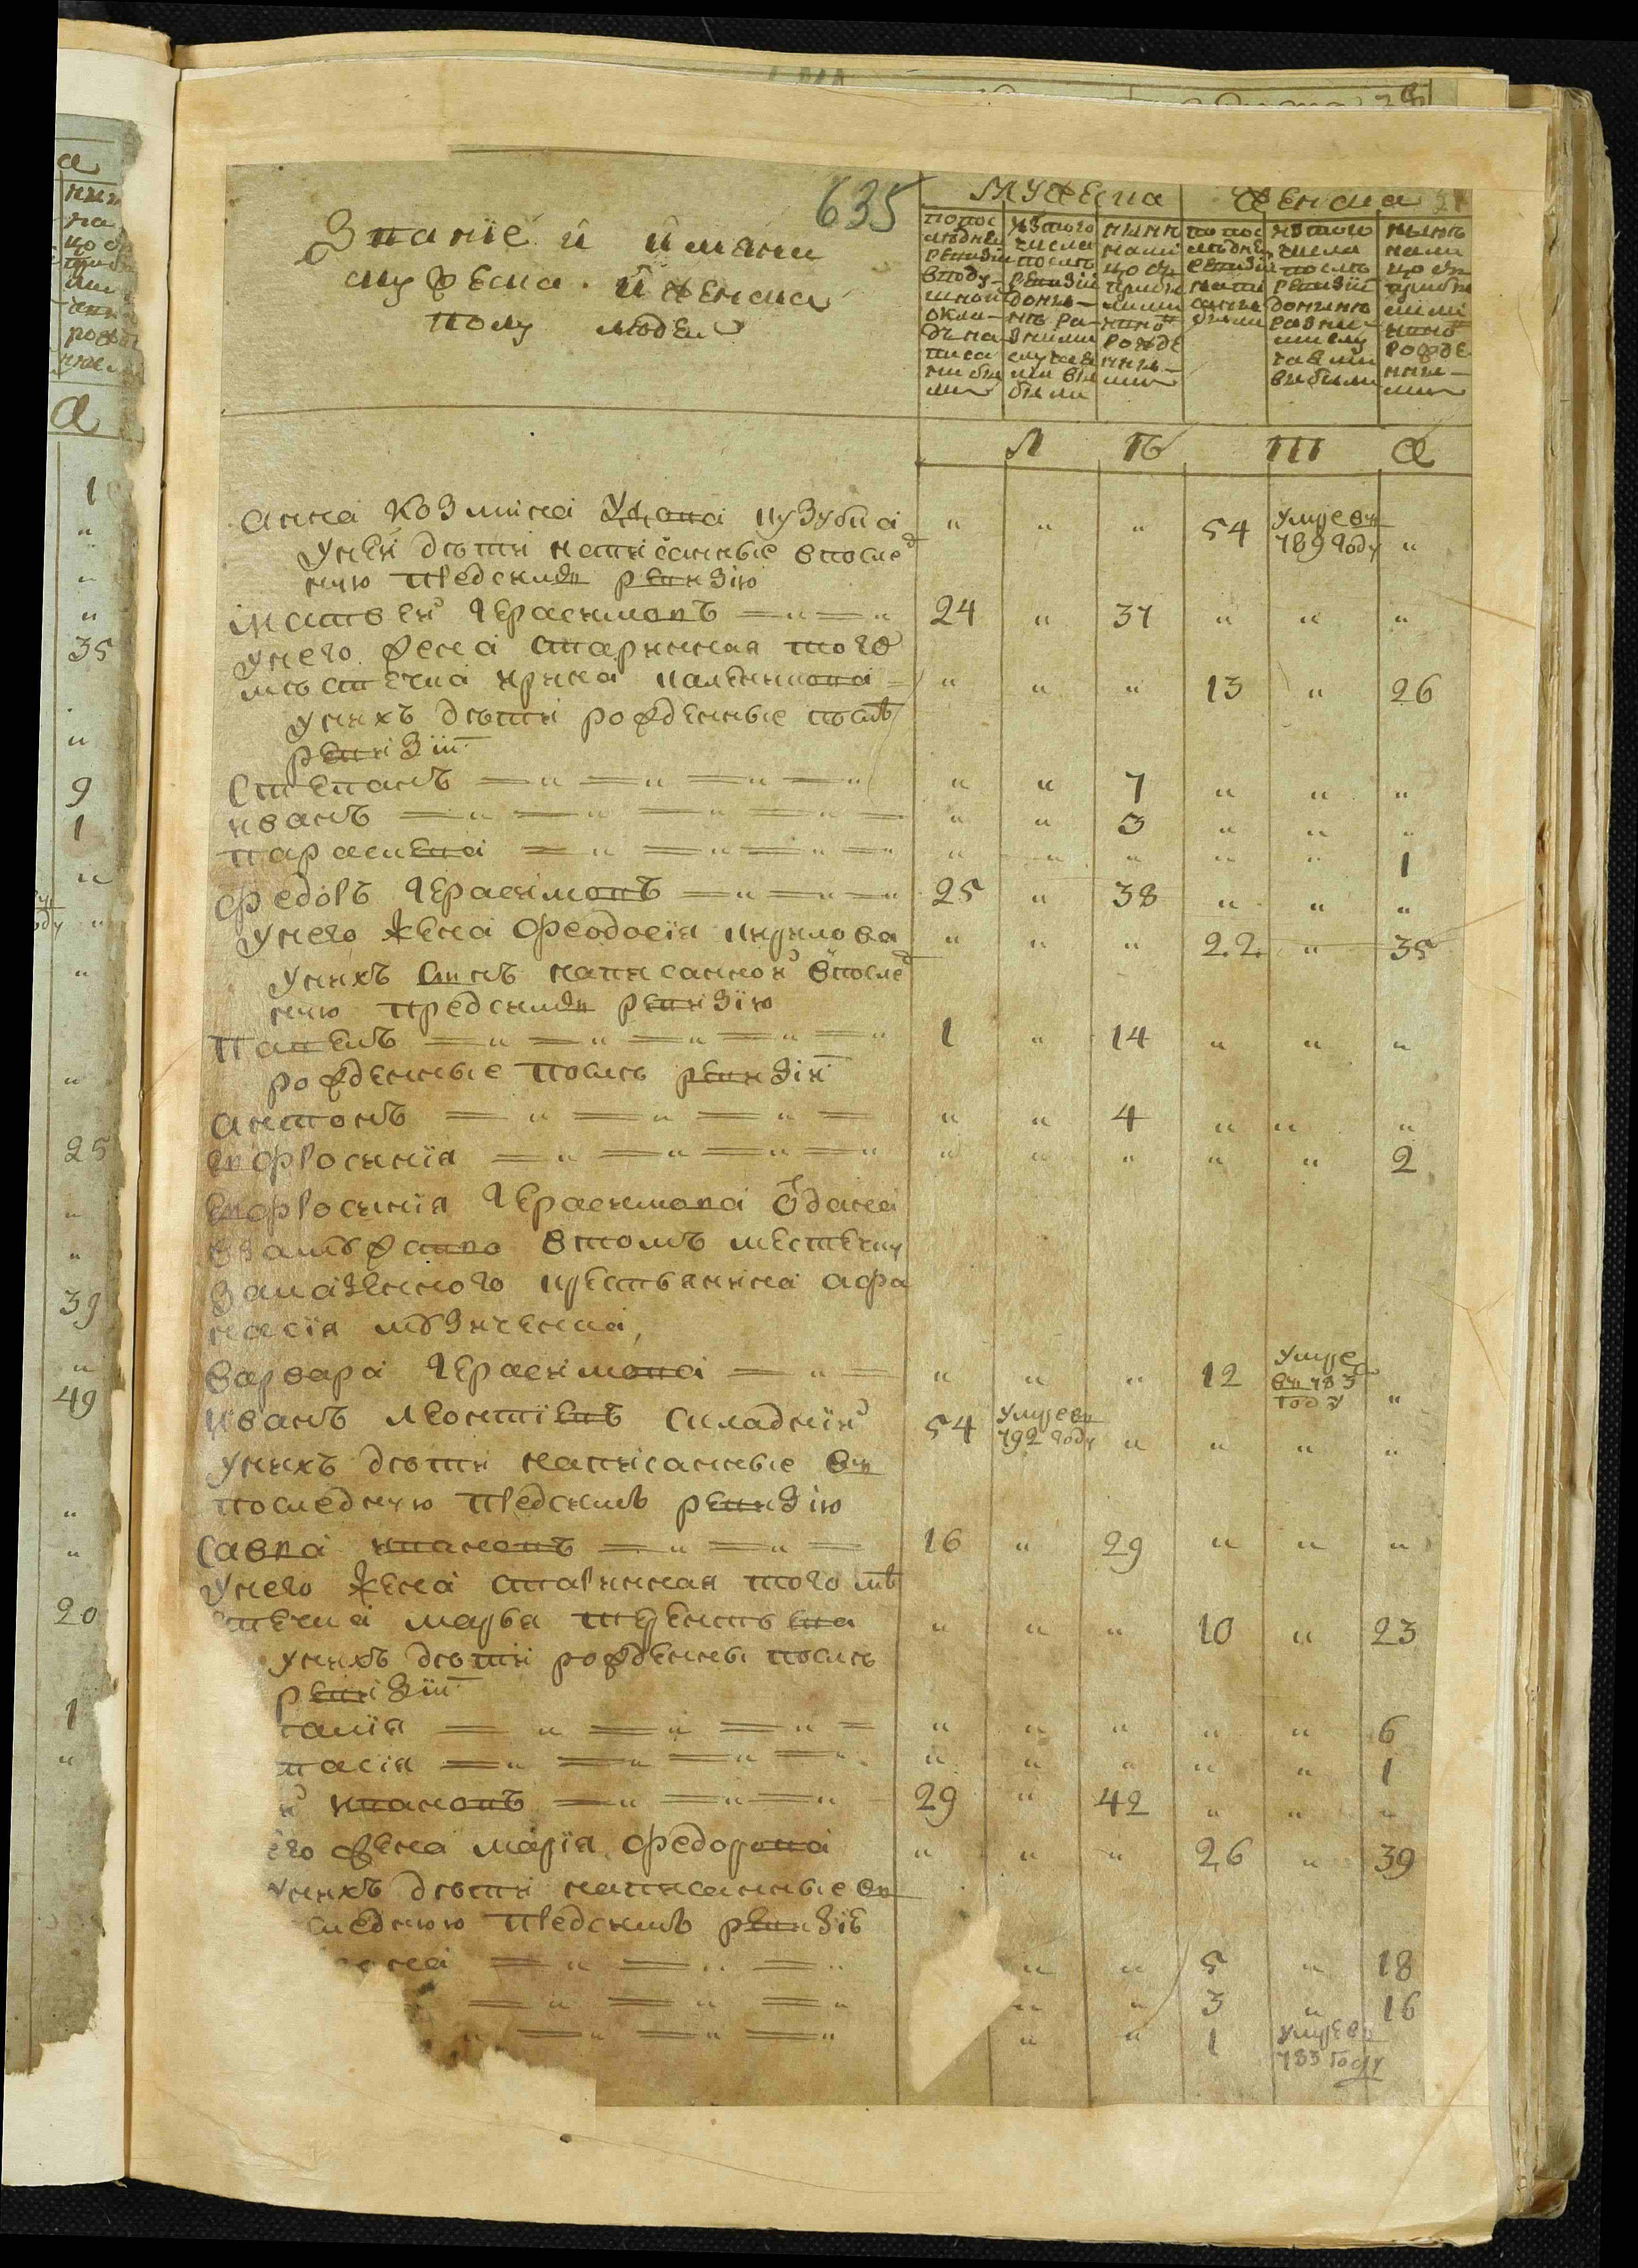 635
Званіе и имяна
мужеска и женска
полу людей
мужеска
женска
по пос
леднеи
ревизіи
в поду-
шной
окла-
дъ на
писа
ни бы
ли
изтого
числа
послъ
ревизіи
донын-
нъ ра-
зними
случая
ми вы
были
нынъ
на ли
цо съ
прибы
лыми
и вно
рожде
нны-
ми
по пос
ледней
ревизіи
изтого
числа
послъ
ревизіи
донынъ
разны-
ми слу
чаями
выбыли
нынъ
нали
цо съ
прибы
лыми
и вно
рожде
нны-
ми
Л Т6 Ш а
анна козмина удова кузубка " " " 54 умре въ 789 году "
у ней дъти написанные в послед
нюю пред симъ ревизію
матвеи герасимовъ 24 " 37 " " "
у него жена старинная того
мъстечка ирина каленикова " " " 13 " 26
у нихъ дъти рожденные послъ
ревизіи
степанъ " " 7 " " "
иванъ " " 3 " " "
параскева " " " " " 1
федоръ герасимовъ 25 " 38 " " "
у него жена феодосія кирилова " " " 22 " 35
у нихъ синъ написанной в послед
нюю пред симъ ревизію
павелъ 1 " 14 " " "
рожденные послъ ревизіи
антонъ " " 4 " " "
евфросинія " " " " " 2
евфросинія герасимова отдана
в замужство в томъ местечку
за казенного крестьянина афа
насія
варвара герасимова " " " 12 умре въ 783 году "
иванъ леонтіевъ складній 54 умре въ 792 году " " " "
у нихъ дъти написанные въ
последнюю пред симъ ревизію
савва ивановъ 16 " 29 " " "
у него жена старинная того мъ
стечка марья терентьева " " " 10 " 23
у нихъ дъти рожденны послъ
ревизіи
талія " " " " " 6
тасія " " " " " 1
й ивановъ 29 " 42 " " "
его жена марія федорова " " " 26 " 39
у нихъ дъти написанные въ
следнюю пред симъ ревизіе
" " 5 " 18
" " 3 " 16
" " 1 умре въ 783 году